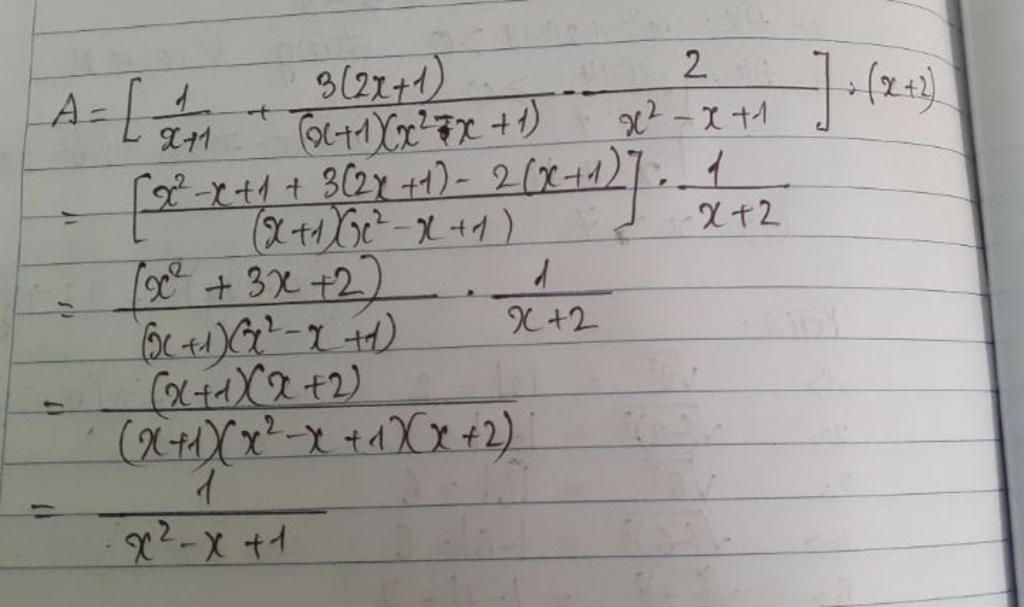 A = [ 1/(x+1) + 3(2x+1)/((x+1)(x²-x+1)) - 2/(x²-x+1) ] : (x+2)
= [ (x²-x+1 + 3(2x+1) - 2(x+1))/((x+1)(x²-x+1)) ] . 1/(x+2)
= (x² + 3x + 2)/((x+1)(x²-x+1)) . 1/(x+2)
= (x+1)(x+2)/((x+1)(x²-x+1)(x+2))
= 1/(x²-x+1)